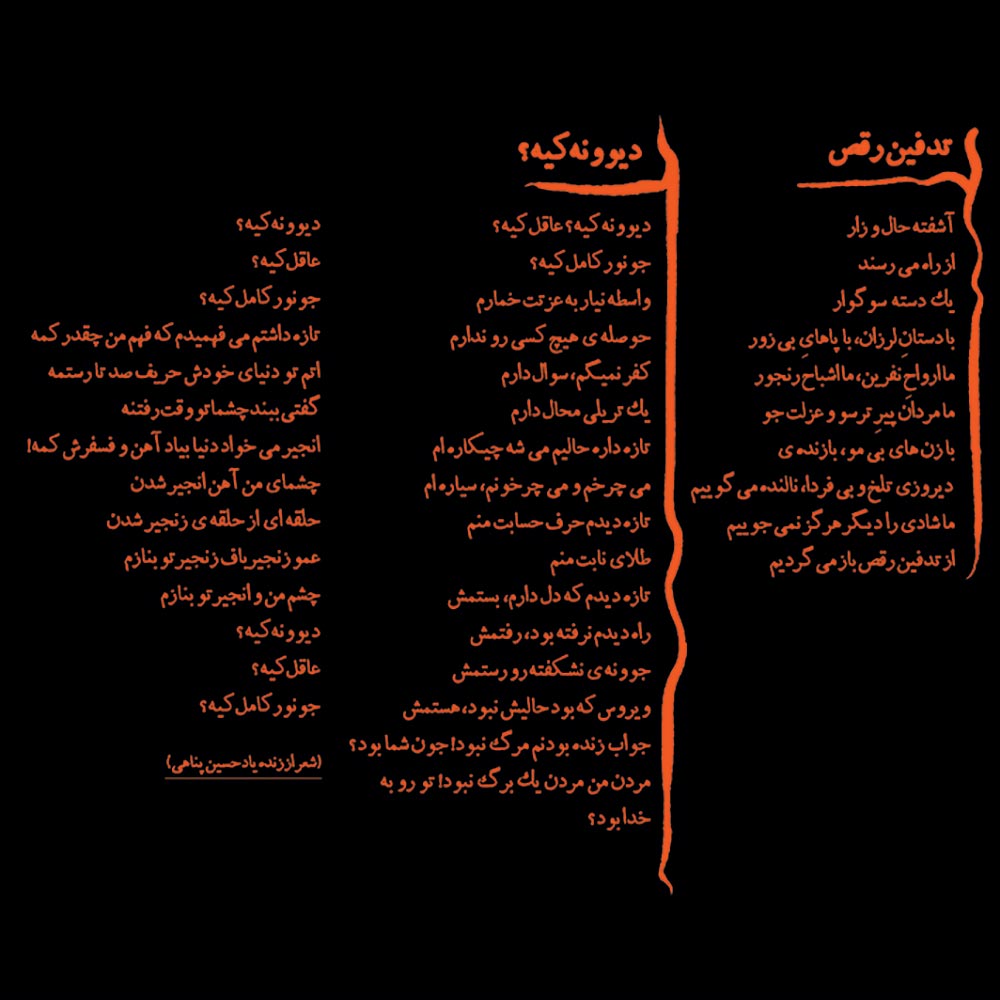 تدفین رقص
آشفته حال و زار
از راه می رسند
یك دسته سوگوار
با دستانِ لرزان، با پاهایِ بی زور
ما ارواحِ نفرین، ما اشباحِ رنجور
ما مردانِ پیرِ ترسو و عزلت جو
با زن های بی مو، بازنده ی
دیروزی تلخ و بی فردا، نالنده می گوییم
ما شادی را دیگر هرگز نمی جوییم
از تدفین رقص باز می گردیم
دیوونه کیه؟
دیوونه کیه؟ عاقل کیه؟
جونور کامل کیه؟
واسطه نیار به عزتت خمارم
حوصله ی هیچ کسی رو ندارم
کفر نمیگم، سوال دارم
یك تریلی محال دارم
تازه داره حالیم می شه چیکاره ام
می چرخم و می چرخونم، سیاره ام
تازه دیدم حرف حسابت منم
طلای نابت منم
تازه دیدم که دل دارم، بستمش
راه دیدم نرفته بود، رفتمش
جوونه ی نشکفته رو رستمش
ویروس که بود حالیش نبود، هستمش
جواب زنده بودنم مرگ نبود! جون شما بود؟
مردن من مردن یك برگ نبود! تو رو به
خدا بود؟
دیوونه کیه؟
عاقل کیه؟
جونور کامل کیه؟
تازه داشتم می فهمیدم که فهم من چقدر کمه
اتم تو دنیای خودش حریف صد تا رستمه
گفتی ببند چشماتو وقت رفتنه
انجیر می خواد دنیا بیاد آهن و فسفرش کمه!
چشمای من آهن انجیر شدن
حلقه ای از حلقه ی زنجیر شدن
عمو زنجیرباف زنجیرتو بنازم
چشم من و انجیرتو بنازم
دیوونه کیه؟
عاقل کیه؟
جونور کامل کیه؟
(شعر از زنده یاد حسین پناهی)